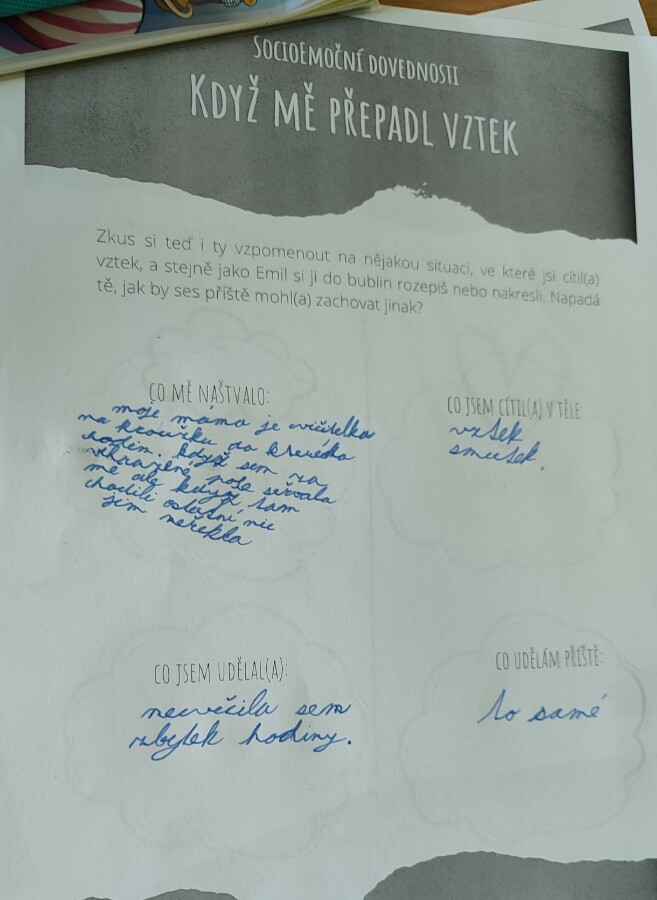 SOCIOEMOČNÍ DOVEDNOSTI
KDYŽ MĚ PŘEPADL VZTEK
Zkus si teď i ty vzpomenout na nějakou situaci, ve které jsi cítil(a)
vztek, a stejně jako Emil si ji do bublin rozepiš nebo nakresli. Napadá
tě, jak by ses příště mohl(a) zachovat jinak?
CO MĚ NAŠTVALO:
moje máma je učitelka
na kroužku do
hodím. když sem
seřvala
mě ale když tam
chodili ostatní nic
jim neřekla
CO JSEM CÍTIL(A) V TĚLE:
vztek
smutek.
CO JSEM UDĚLAL(A):
necvičila sem
zbytek hodiny.
CO UDĚLÁM PŘÍŠTĚ:
to samé